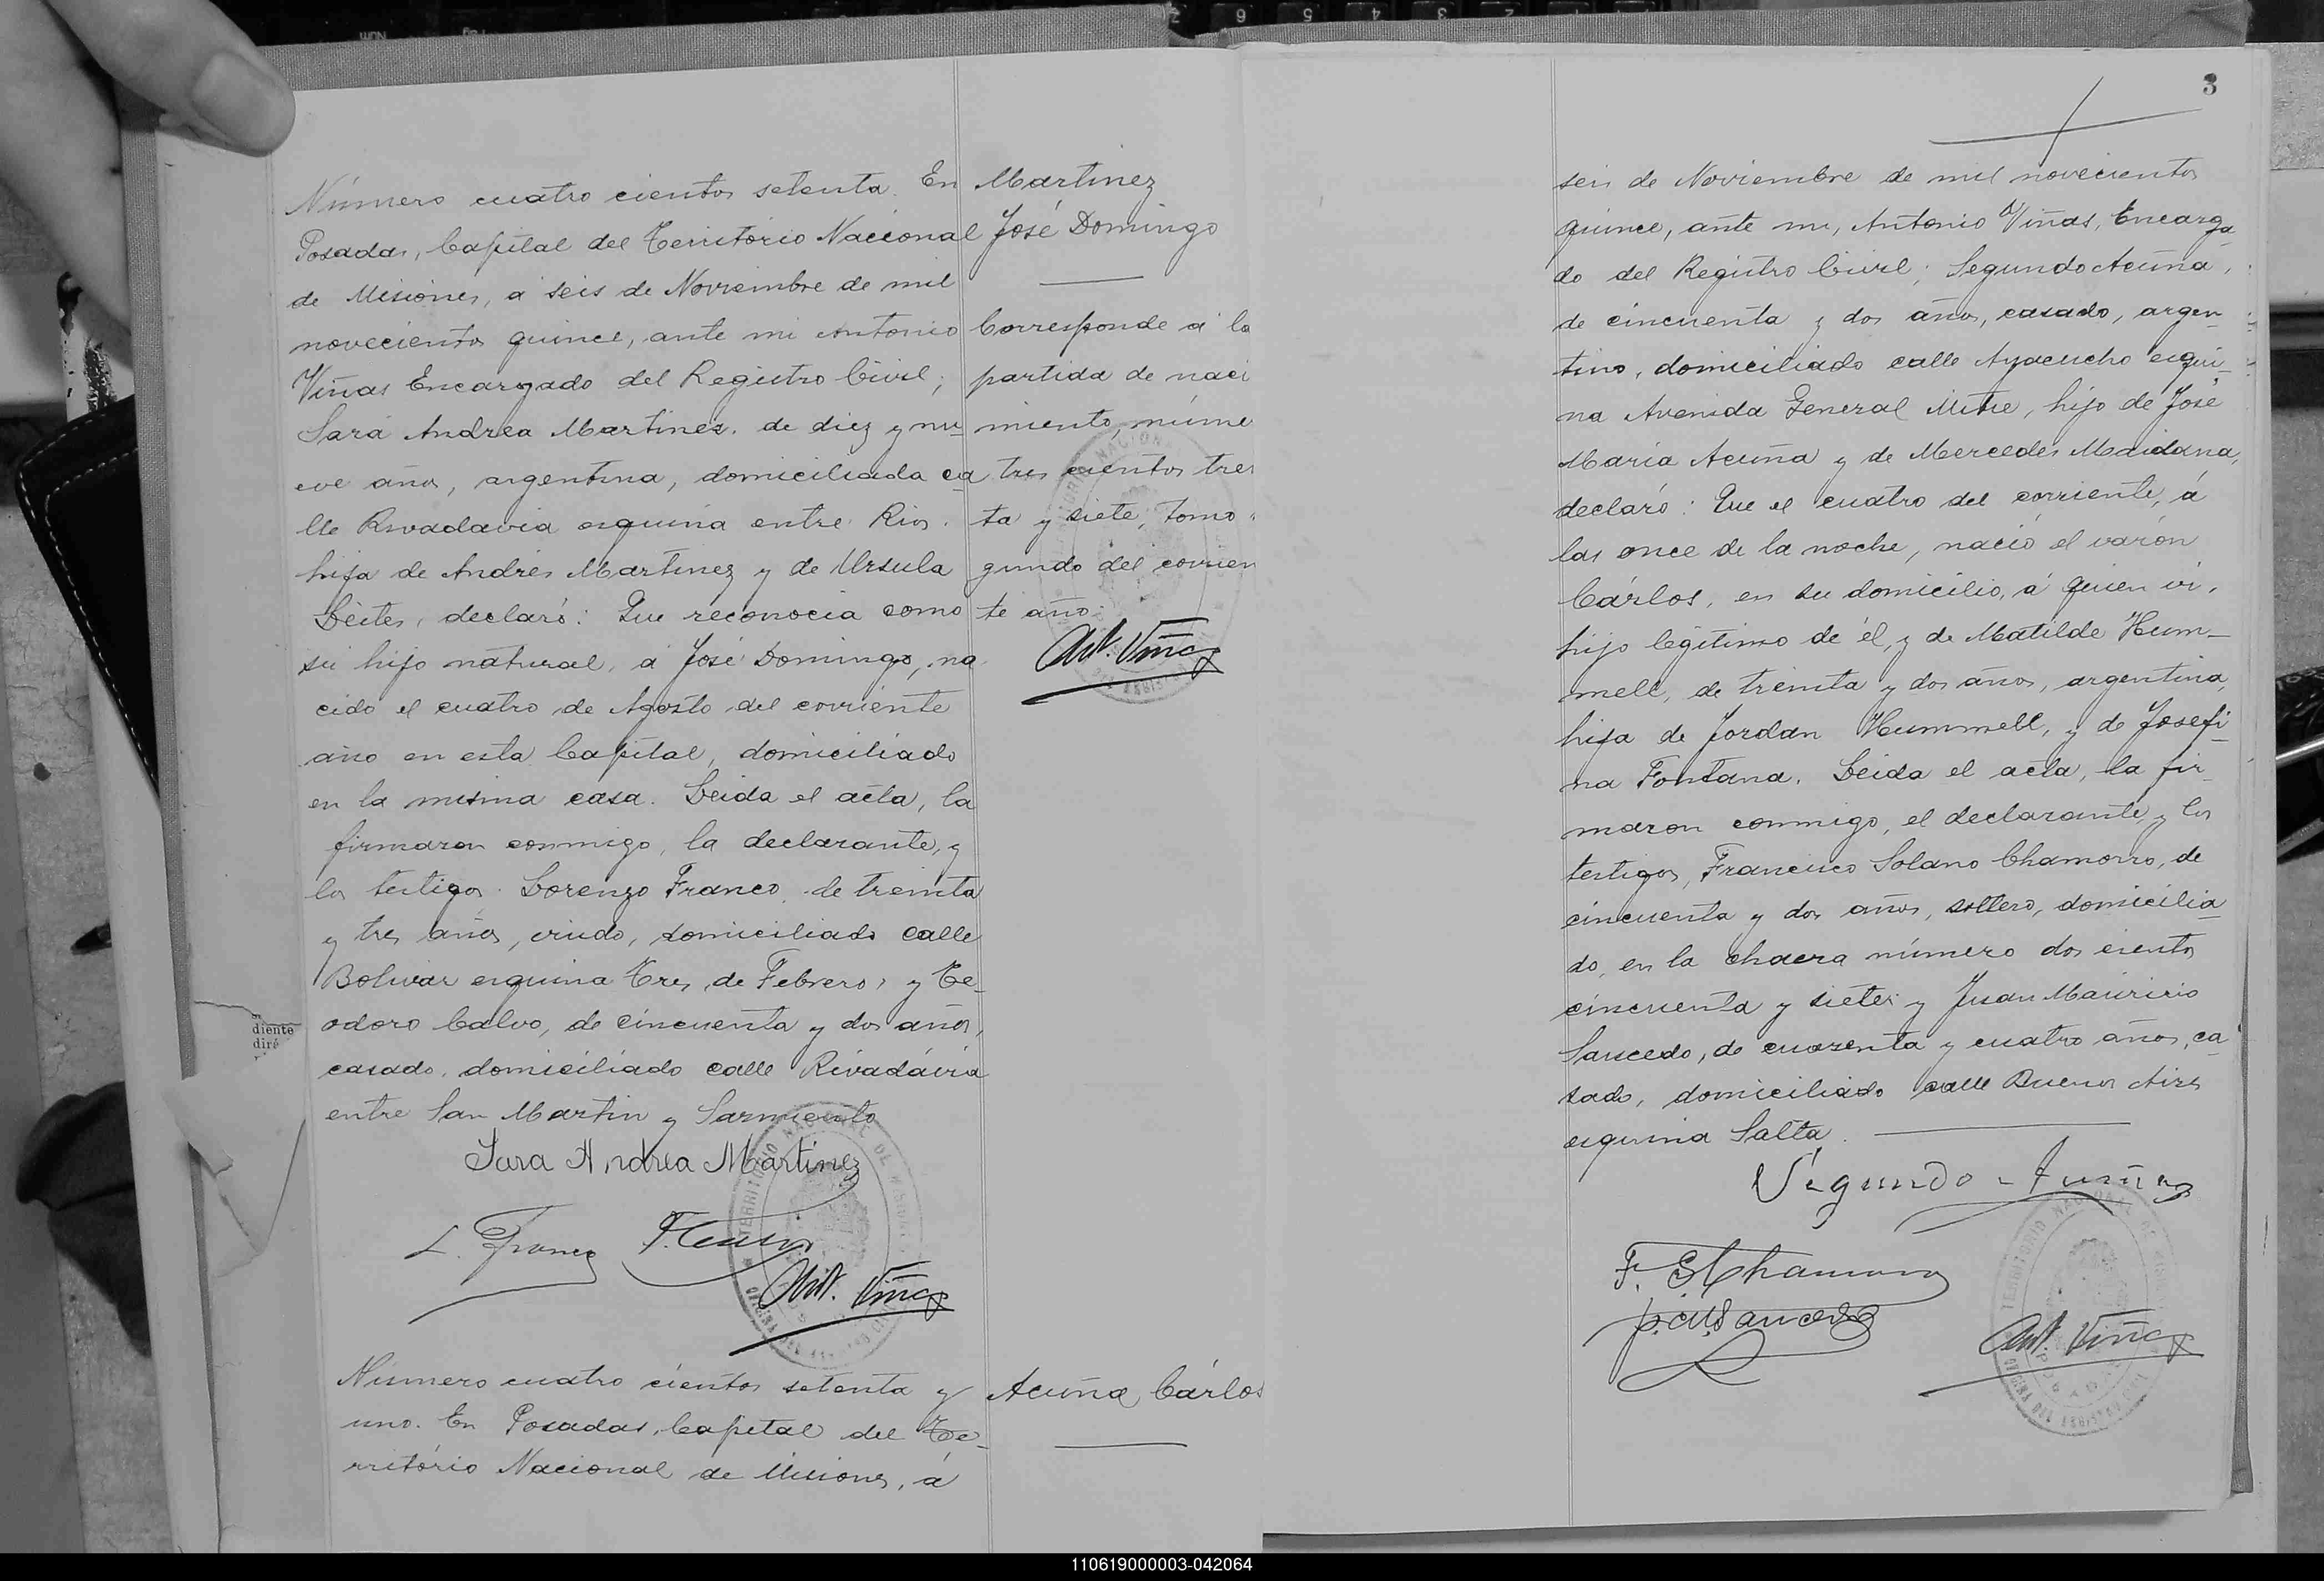 Número cuatro cientos setenta. En
Posadas, Capital del Territorio Nacional
de Misiones, á seis de Noviembre de mil
novecientos quince, ante mi Antonio
Viñas Encargado del Registro Civil;
Sara Andrea Martinez, de diez y nu
eve años, argentina, domiciliada ca
lle Rivadavia esquina entre Rios.
hija de Andrés Martinez y de Ursula
Leites, declaró: Que reconocia como
su hijo natural, á José Domingo, na
cido el cuatro de Agosto del corriente
año en esta Capital, domiciliado
en la misma casa. Leida el acta, la
firmaron conmigo, la declarante, y
los testigos Lorenzo Franco, de treinta
y tres años, viudo, domiciliado calle
Bolivar esquina Tres de Febrero, y Te-
odoro Calvo, de cincuenta y dos años,
casado, domiciliado calle Rivadávia
entre San Martin y Sarmiento
Sara Andrea Martinez
L. Franco
Ant. Viñas
Martinez
José Domingo
Corresponde á la
partida de naci
miento, núme
tres cientos trein
ta y siete, tomo
gundo del corrien
te año.
Ant. Viñas
Número cuatro cientos setenta y
uno. En Posadas, Capital del Te-
rritório Nacional de Misiones, á
Acuña, Cárlos
diente
diré
3
seis de Noviembre de mil novecientos
quince, ante mi, Antonio Viñas, Encarga-
do del Registro Civil; Segundo Acuña,
de cincuenta y dos años, casado, argen-
tino, domiciliado calle Ayacucho esqui-
na Avenida General Mitre, hijo de José
Maria Acuña y de Mercedes Maidana,
declaró: Que el cuatro del corriente, á
las once de la noche, nació el varón
Cárlos, en su domicilio, á quien vi,
hijo legitimo de él, y de Matilde Hum-
mell, de treinta y dos años, argentina,
hija de Jordan Hummell, y de Josefi-
na Fontana. Leida el acta, la fir-
maron conmigo, el declarante, y los
testigos, Francisco Solano Chamorro, de
cincuenta y dos años, soltero, domicilia-
do, en la chacra número dos cientos
cincuenta y siete; y Juan Mauricio
Saucedo, de cuarenta y cuatro años, ca-
sado, domiciliado calle Buenos Aires
esquina Salta.
Segundo Acuña
F. S. Chamorro
J. M. Saucedo
Ant. Viñas
110619000003-042064